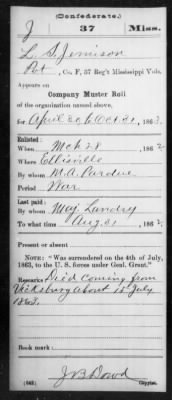 (Confederate.)
J 37 Miss.
L. S. Jemison
Pvt, Co. F, 37 Reg't Mississippi Vols.
Appears on
Company Muster Roll
of the organization named above,
for April 30 to Oct 31, 1863.
Enlisted:
When Mch 28, 1862
Where Ellisville
By whom M. A. Pardue
Period War
Last paid:
By whom Maj. Landry
To what time Aug 31, 1862
Present or absent
NOTE: "Was surrendered on the 4th of July,
1863, to the U. S. forces under Genl. Grant."
Remarks: Died coming from
Vicksburg about 15 July
1863.
Book mark:
J B Dowd
(642) Copyist.